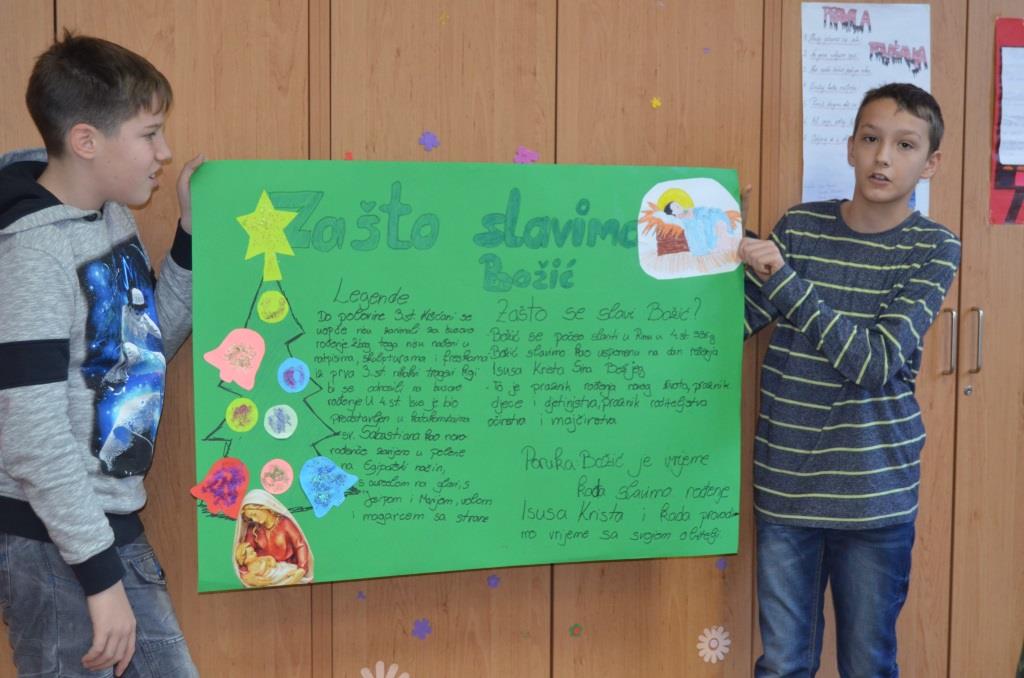 Zašto slavimo
Božić
Legende
Do polovine 3.st. kršćani se
uopće nisu zanimali za Isusovo
rođenje zbog toga nisu nađeni u
natpisima, skulpturama i freskama
iz prva 3.st. nikakvi tragovi koji
bi se odnosili na Isusovo
rođenje. U 4.st. Isus je bio
predstavljen u katakombama
sv. Sabastiana kao novo
rođenče zavijeno u pelene
na Egipatski način,
s aureolom na glavi, s
Josipom i Marijom, volom
i magarcem sa strane
Zašto se slavi Božić?
Božić se počeo slaviti u Rimu u 4.st.
Božić slavimo kao uspomenu na dan rođenja
Isusa Krista Sina Božjeg
- To je praznik rođenja novog života, praznik
djece i djetinjstva, praznik roditeljstva
očinstva i majčinstva
Poruka: Božić je vrijeme
kada slavimo rođenje
Isusa Krista i kada provodi
mo vrijeme sa svojom obitelji.
PRAVILA